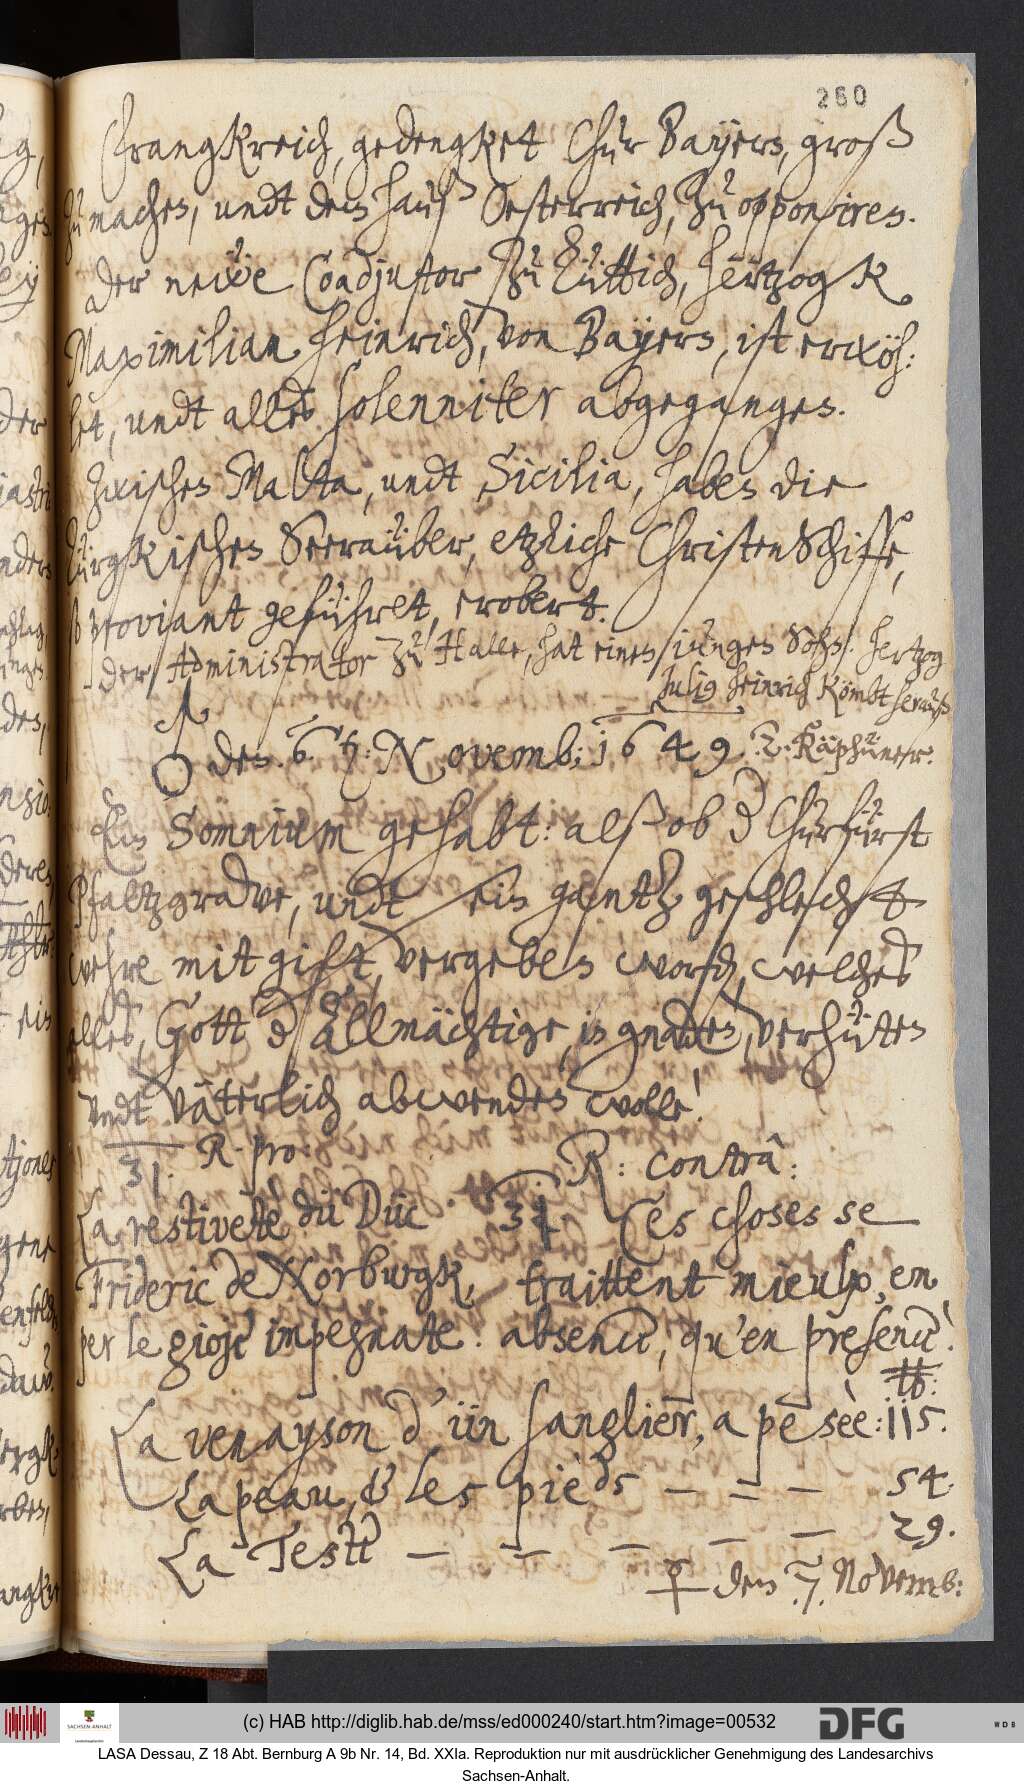 260
Frangkreich, gedengket Chur Bayern, groß
zu machen, undt dem hauß Oesterreich, zu opponiren.
Der neẅe Coadjutor zu Lüttich, hertzogk
Maximilian Heinrich, von Bayern, ist erwöh:
let, undt alles solenniter abgegangen.
Zwischen Malta, undt Sicilia, haben die
Türgkischen Seeraüber, etzliche ChristenSchiffe,
so proviant geführet, erobert.
Der Administrator zu Halle, hat einen jungen Sohn: hertzog
heinrich kömbt herauß
♂ den 6. 9: Novemb: 1649.
Ein Somnium gehabt: alß ob der Churfürst
Pfaltzgrave, undt sein gantz geschlecht
wehre mit gift, vergeben word, welches
alles, Gott der Allmächtige, in gnaden, verhüten
undt väterlich abwenden wolle!
31. R. pro:
R: contrâ:
La restiveté du Duc
Frideric de Norburgk,
per le gioje impegnate.
Ces choses se
traittent mieulx, en
absence, qu'en presence!
La venayson d'ün sanglier, a pesèe: 115.
La peau, & les pièds — — — 54.
La Teste — — — — — 29.
den .7. Novemb:
(c) HAB http://diglib.hab.de/mss/ed000240/start.htm?image=00532
DFG
WDB
SACHSEN-ANHALT
LASA Dessau, Z 18 Abt. Bernburg A 9b Nr. 14, Bd. XXIa. Reproduktion nur mit ausdrücklicher Genehmigung des Landesarchivs
Sachsen-Anhalt.